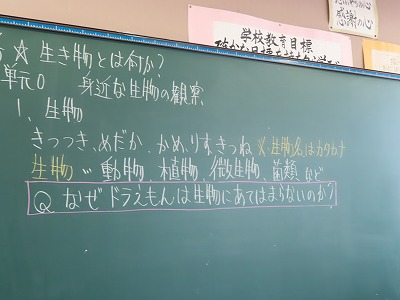 感謝の心
学校教育目標
☆生き物とは何か？
単元0 身近な生物の観察
1. 生物
きつつき、めだか、かめ、りす、きつね ※生物名はカタカナ
生物＝動物、植物、微生物、菌類 など
Q なぜドラえもんは生物にあてはまらないのか？